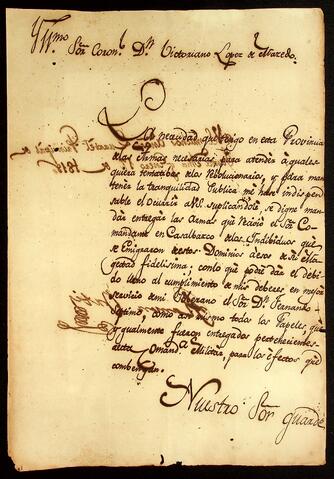 Yll.mo Sõr Coron.l D.n Victoriano Lopez de Alvaredo.
necesidad que tengo en esta Provincia
de las Armas necesarias para atender a quales
quiera tentatibas de los Revolucionarios, y para man
tener la tranquilidad Publica me hace indispen
sable el ocurrir a V.E. suplicandole, se digne man
dar entregar las Armas que recivio el Sõr Co
mandante en Casalbasco de los Individuos que
se Emigraron de estos Dominios a esos de Su Ma
gestad fidelisima, con lo que podre dar el debi
do lleno al cumplimiento de mis deberes en mejor
servicio de mi Soberano el Sõr D.n Fernando
Septimo, como asi mismo todos los Papeles, que
ygualmente fueron entregados pertenecientes
a esta Comand.a Militar, para los efectos que
combengan.
Nuestro Sõr guarde